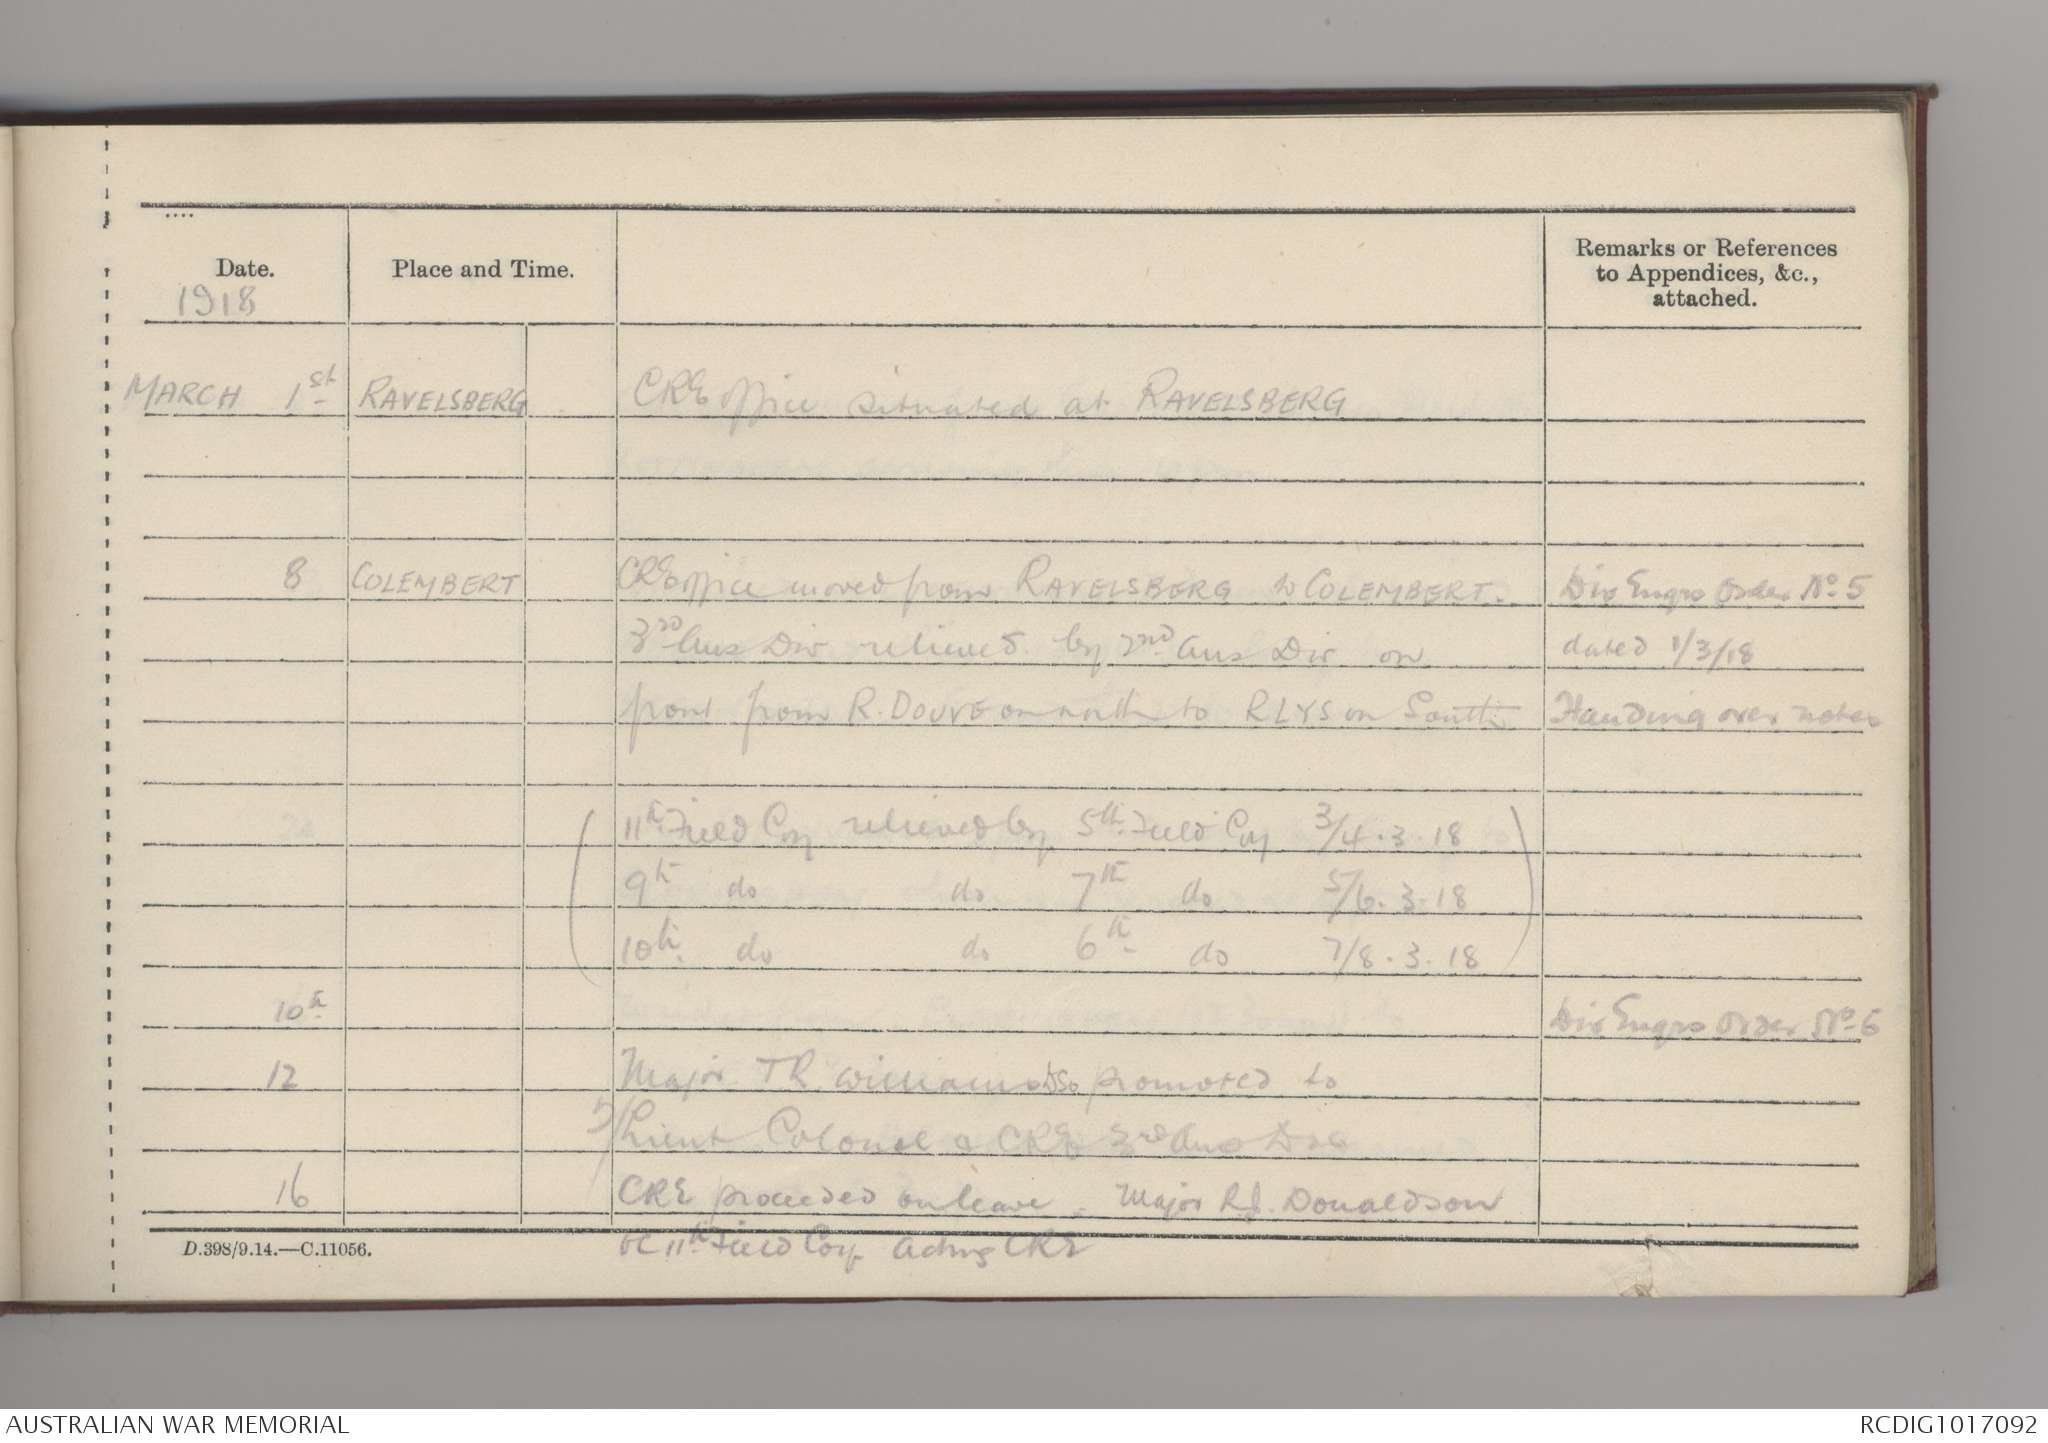 Date.
1918
Place and Time.
Remarks or References
to Appendices, &c.,
attached.
MARCH 1st RAVELSBERG CRE office situated at RAVELSBERG
8 COLEMBERT CRE office moved from RAVELSBERG to COLEMBERT. Div Engrs Order No 5
3rd Aus Div relieved by 2nd Aus Div on dated 1/3/18
front from R. DOUVE on north to R LYS on South Handing over notes
(11th Field Coy relieved by 5th Field Coy 3/4.3.18)
9th do do 7th do 5/6.3.18
10th do do 6th do 7/8.3.18
10th Div Engrs Order No 6
12 Major TR Williams DSO promoted to
Lieut Colonel & CRE 3rd Aus Div
16 CRE proceeded on leave. Major RJ. Donaldson
OC 11th Field Coy acting CRE
D.398/9.14.—C.11056.
AUSTRALIAN WAR MEMORIAL
RCDIG1017092